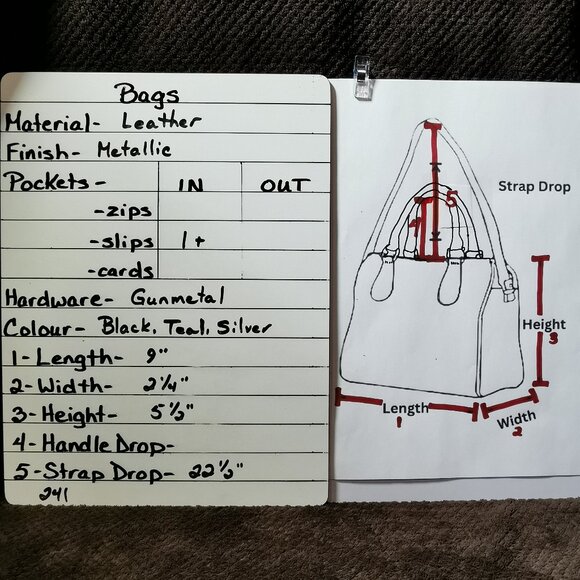 Bags
Material- Leather
Finish- Metallic
Pockets- IN OUT
-zips
-slips 1+
-cards
Hardware- Gunmetal
Colour- Black, Teal, Silver
1-Length- 9"
2-Width- 2¼"
3-Height- 5½"
4-Handle Drop-
5-Strap Drop- 22½"
241
Strap Drop
5
4
Height
3
Length
1
Width
2